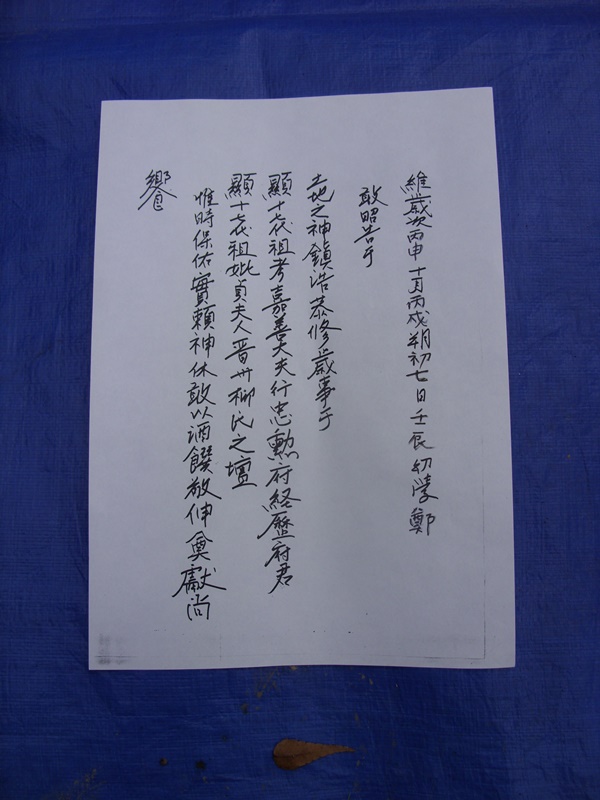 維歲次丙申十月丙戌朔初七日壬辰幼學鄭
敢昭告于
土地之神鎭浩恭修歲事于
顯十七代祖考嘉善大夫行忠勳府経歷府君
顯十七代祖妣貞夫人晋州柳氏之壇
惟時保佑實賴神休敢以酒饌敬伸奠獻尙
饗